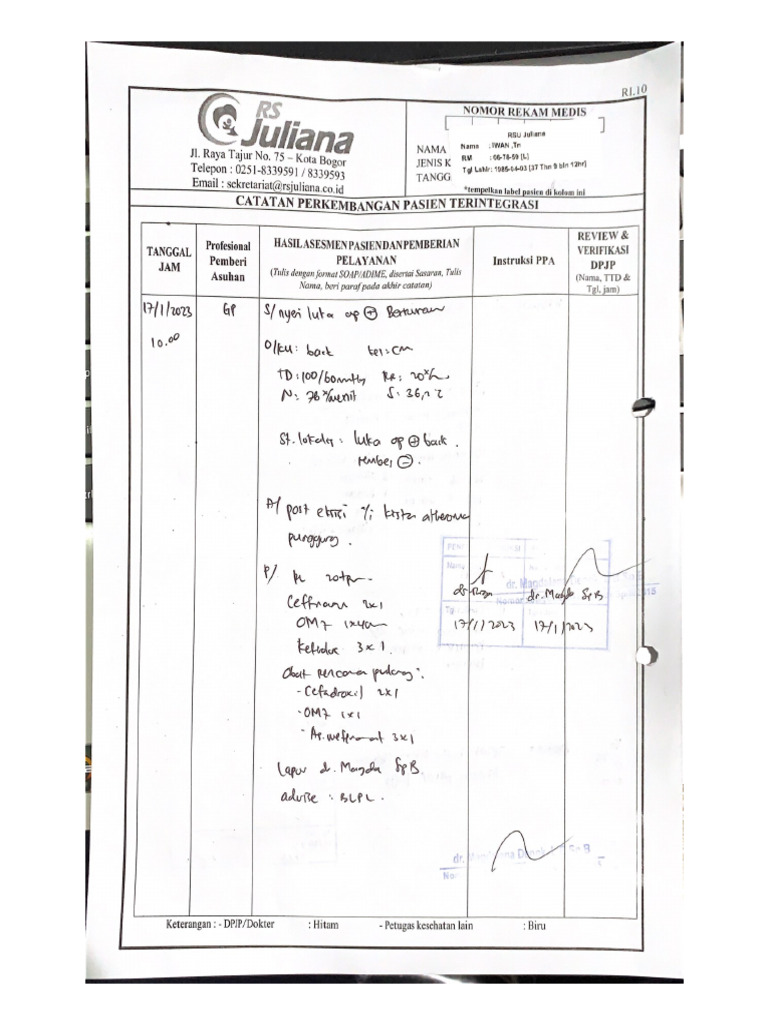 RI.10
RS
Juliana
Jl. Raya Tajur No. 75 – Kota Bogor
Telepon : 0251-8339591 / 8339593
Email : sekretariat@rsjuliana.co.id
NOMOR REKAM MEDIS
RSU Juliana
NAMA
Nama : IWAN ,Tn
JENIS K
RM : 06-76-59 (L)
TANGG
Tgl Lahir: 1985-04-03 (37 Thn 9 bln 12hr)
*tempelkan label pasien di kolom ini
CATATAN PERKEMBANGAN PASIEN TERINTEGRASI
TANGGAL JAM
Profesional Pemberi Asuhan
HASIL ASESMEN PASIEN DAN PEMBERIAN PELAYANAN
(Tulis dengan format SOAP/ADIME, disertai Sasaran, Tulis Nama, beri paraf pada akhir catatan)
Instruksi PPA
REVIEW & VERIFIKASI DPJP
(Nama, TTD & Tgl, jam)
17/1/2023 GP S/ nyeri luka op ⊕ Berkurang
10.00
O/KU: baik kes: CM
TD: 100/60 mmHg RR: 20x/
N: 78x/menit S: 36,
St. lokalis: luka op ⊕ baik.
rembes ⊖.
A/ post eksisi kista atheroma
punggung.
P/ 20 tpm
2x1
OMZ 1x
3x1
Obat rencana pulang:
- Cefadroxil 2x1
- OMZ 1x1
- As. mefenamat 3x1
Lapor dr. Magda SpB.
advise : BLPL.
dr. dr. Magda SpB
17/1/2023 17/1/2023
Keterangan : - DPJP/Dokter : Hitam - Petugas kesehatan lain : Biru